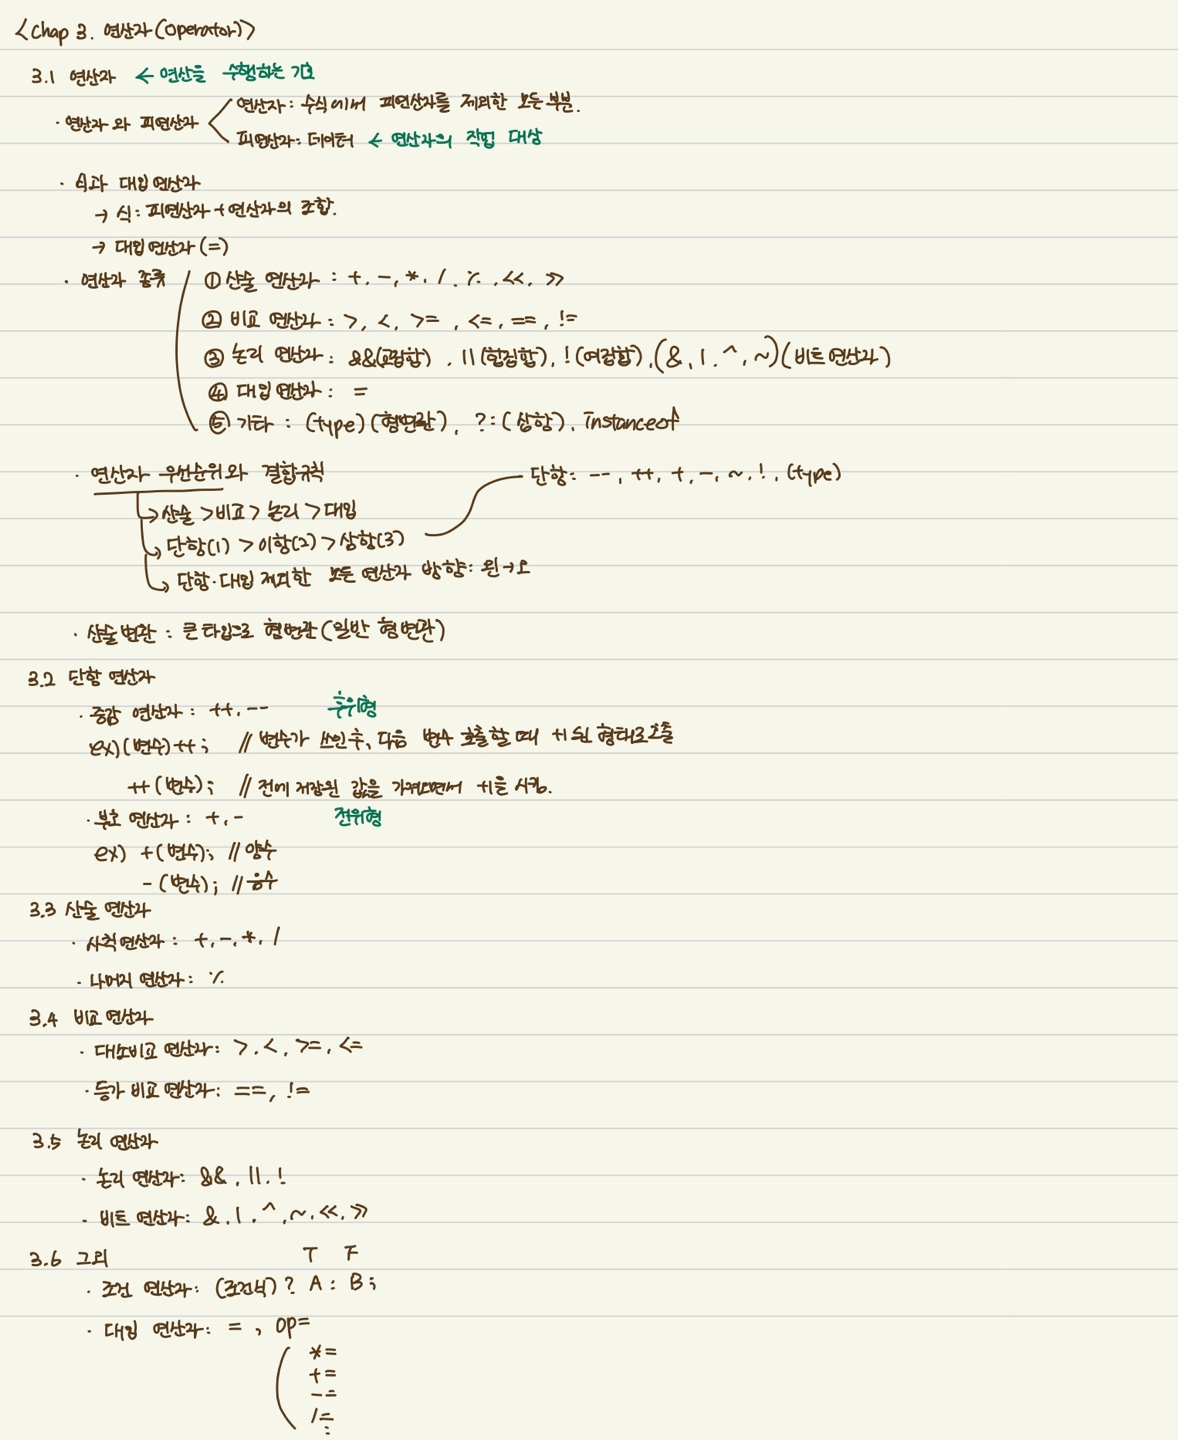 <Chap 3. 연산자(operator)>
3.1 연산자 ← 연산을 수행하는 기호
· 연산자 와 피연산자
연산자 : 수식에서 피연산자를 제외한 모든 부분.
피연산자 : 데이터 ← 연산자의 작업 대상
· 식과 대입연산자
→ 식 : 피연산자 + 연산자의 조합.
→ 대입연산자(=)
· 연산자 종류
① 산술 연산자 : +, -, *, /, %, <<, >>
② 비교 연산자 : >, <, >=, <=, ==, !=
③ 논리 연산자 : &&(교집합), ||(합집합), !(여집합), (&, |, ^, ~)(비트 연산자)
④ 대입 연산자 : =
⑤ 기타 : (type)(형변환), ?:(삼항), instanceof
· 연산자 우선순위와 결합규칙
→ 산술 > 비교 > 논리 > 대입
→ 단항(1) > 이항(2) > 삼항(3)
단항 : --, ++, +, -, ~, !, (type)
→ 단항·대입 제외한 모든 연산자 방향 : 왼→오
· 산술변환 : 큰 타입으로 형변환(일반 형변환)
3.2 단항 연산자
· 증감 연산자 : ++, --
후위형
ex) (변수)++; // 변수가 쓰인 후, 다음 변수 호출할 때 +1된 형태로 호출
++(변수); // 전에 저장된 값을 가져오면서 +1을 시킴.
· 부호 연산자 : +, -
전위형
ex) +(변수); // 양수
-(변수); // 음수
3.3 산술 연산자
· 사칙연산자 : +, -, *, /
· 나머지 연산자 : %
3.4 비교 연산자
· 대소비교 연산자 : >, <, >=, <=
· 등가 비교 연산자 : ==, !=
3.5 논리 연산자
· 논리 연산자 : &&, ||, !
· 비트 연산자 : &, |, ^, ~, <<, >>
3.6 그외
T F
· 조건 연산자 : (조건식) ? A : B ;
· 대입 연산자 : = , op=
*=
+=
-=
/=
⋮